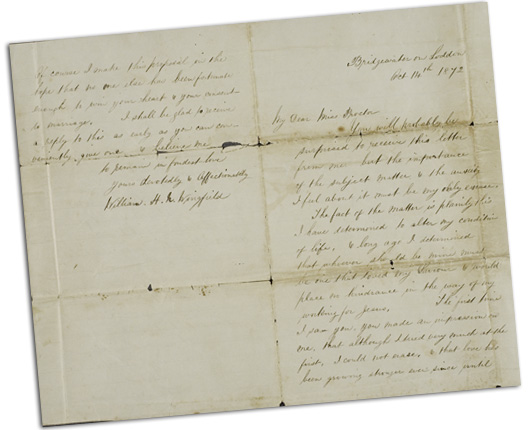 Bridgewater on Loddon
Oct 14th 1872
My Dear Miss Proctor
You will probably be
surprised to receive this letter
from me but the importance
of the subject matter & the anxiety
I feel about it must be my only excuse.
The fact of the matter is plainly this
I have determined to alter my condition
of life, & long ago I determined
that whoever should be mine must
be one that loved my Saviour & would
place no hindrance in the way of my
working for Jesus, The first time
I saw you, you made an impression on
me, that although I tried very much at the
first, I could not erase, & that love has
been growing stronger ever since until
Of course I make this proposal in the
hope that no one else has been fortunate
enough to win your heart & your consent
to marriage. I shall be glad to receive
a reply to this as early as you can con-
veniently give one & believe me
to remain in fondest love
yours devotedly & affectionately
William H. Wingfield